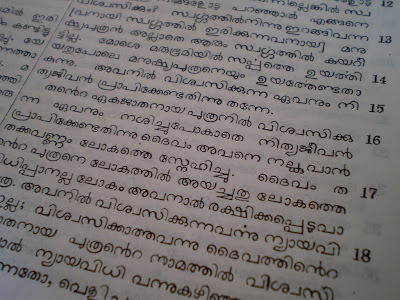 പറഞ്ഞാൽ എങ്ങനെ 12
വിശ്വസിക്കും? സ്വൎഗ്ഗത്തിൽനിന്നു ഇറങ്ങിവന്ന 13
വനായി സ്വൎഗ്ഗത്തിൽ ഇരിക്കുന്നവനായ മനു
ഷ്യപുത്രൻ അല്ലാതെ ആരും സ്വൎഗ്ഗത്തിൽ കയറീ
ട്ടില്ല. മോശെ മരുഭൂമിയിൽ സൎപ്പത്തെ ഉയൎത്തി 14
യതുപോലെ മനുഷ്യപുത്രനെയും ഉയൎത്തേണ്ടതാ
കുന്നു. അവനിൽ വിശ്വസിക്കുന്ന ഏവനും നി 15
ത്യജീവൻ പ്രാപിക്കേണ്ടതിന്നു തന്നേ.
തന്റെ ഏകജാതനായ പുത്രനിൽ വിശ്വസിക്കു 16
ന്ന ഏവനും നശിച്ചുപോകാതെ നിത്യജീവൻ
പ്രാപിക്കേണ്ടതിന്നു ദൈവം അവനെ നല്കുവാൻ
തക്കവണ്ണം ലോകത്തെ സ്നേഹിച്ചു. ദൈവം ത 17
ന്റെ പുത്രനെ ലോകത്തിൽ അയച്ചതു ലോകത്തെ
വിധിപ്പാനല്ല ലോകം അവനാൽ രക്ഷിക്കപ്പെടുവാ
ത്രേ. അവനിൽ വിശ്വസിക്കുന്നവന്നു ന്യായവി 18
ല്ല; വിശ്വസിക്കാത്തവന്നു ദൈവത്തിന്റെ
തനായ പുത്രന്റെ നാമത്തിൽ വിശ്വസി
ന്യായവിധി വന്നുകഴിഞ്ഞു